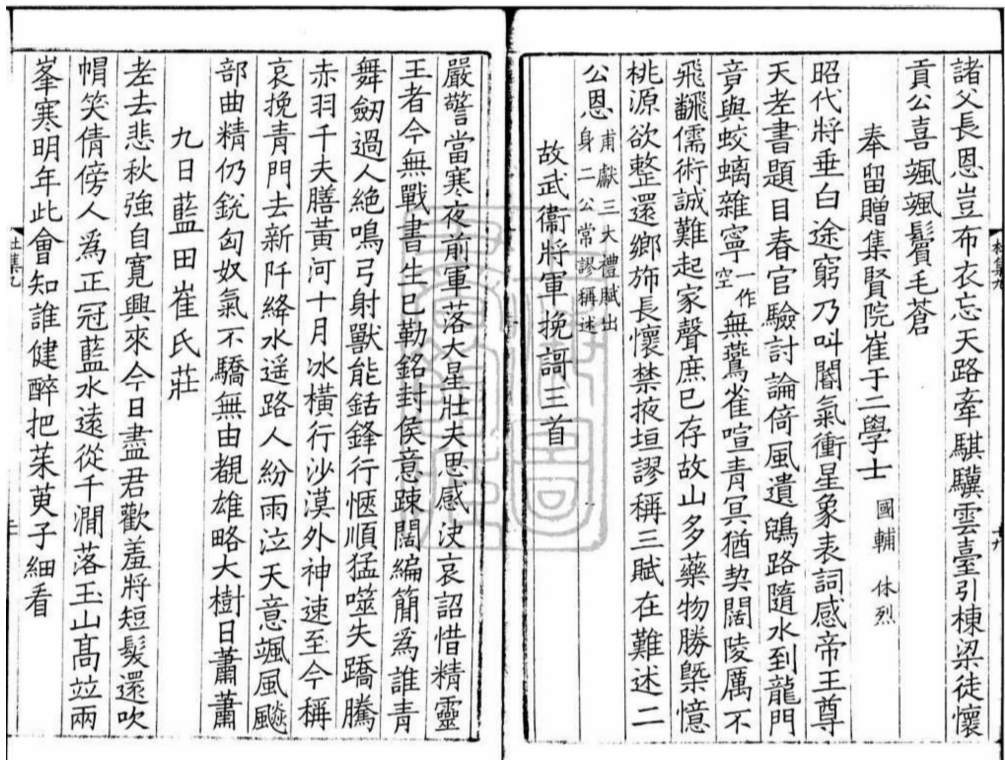 諸父長恩豈布衣忘天路牽騏驥雲臺引棟梁徒懷
貢公喜颯颯鬢毛蒼
奉留贈集賢院崔于二學士國輔 休烈
昭代將垂白途窮乃叫閽氣衝星象表詞感帝王尊
天老書題目春官驗討論倚風遺鶂路隨水到龍門
竟與蛟螭雜寧一作空無鷰雀喧青冥猶契闊陵厲不
飛飜儒術誠難起家聲庶已存故山多藥物勝槩憶
桃源欲整還鄉斾長懷禁掖垣謬稱三賦在難述二
公恩甫獻三大禮賦出身二公常謬稱述
故武衞將軍挽謌三首
嚴警當寒夜前軍落大星壯夫思感決哀詔惜精靈
王者今無戰書生已勒銘封侯意踈闊編簡爲誰青
舞劒過人絶鳴弓射獸能銛鋒行愜順猛噬失蹻騰
赤羽千夫膳黃河十月冰橫行沙漠外神速至今稱
哀挽青門去新阡絳水遥路人紛雨泣天意颯風飇
部曲精仍銳匈奴氣不驕無由覩雄略大樹日蕭蕭
九日藍田崔氏莊
老去悲秋強自寬興來今日盡君歡羞將短髮還吹
帽笑倩傍人爲正冠藍水遠從千澗落玉山髙竝兩
峯寒明年此會知誰健醉把茱萸子細看